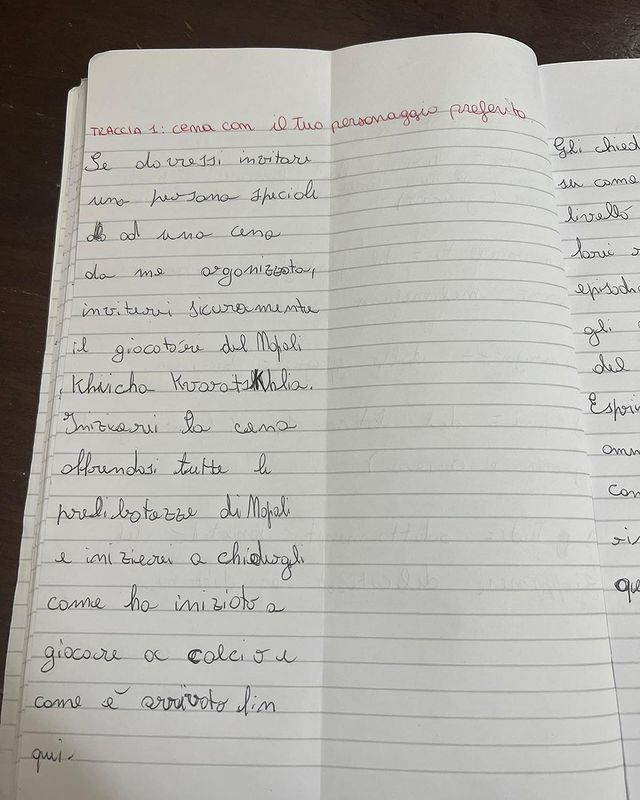 TRACCIA 1: cena con il tuo personaggio preferito
Se dovessi invitare
una persona speciale
ad una cena
da me organizzata,
inviterei sicuramente
il giocatore del Napoli
, Khvicha Kvaratskhelia.
Inizierei la cena
offrendosi tutte le
prelibatezze di Napoli
e inizierei a chiedergli
come ha iniziato a
giocare a calcio e
come è arrivato fin
qui.
Gli chied
su come
livello
episodi
gli
del
Espri
con